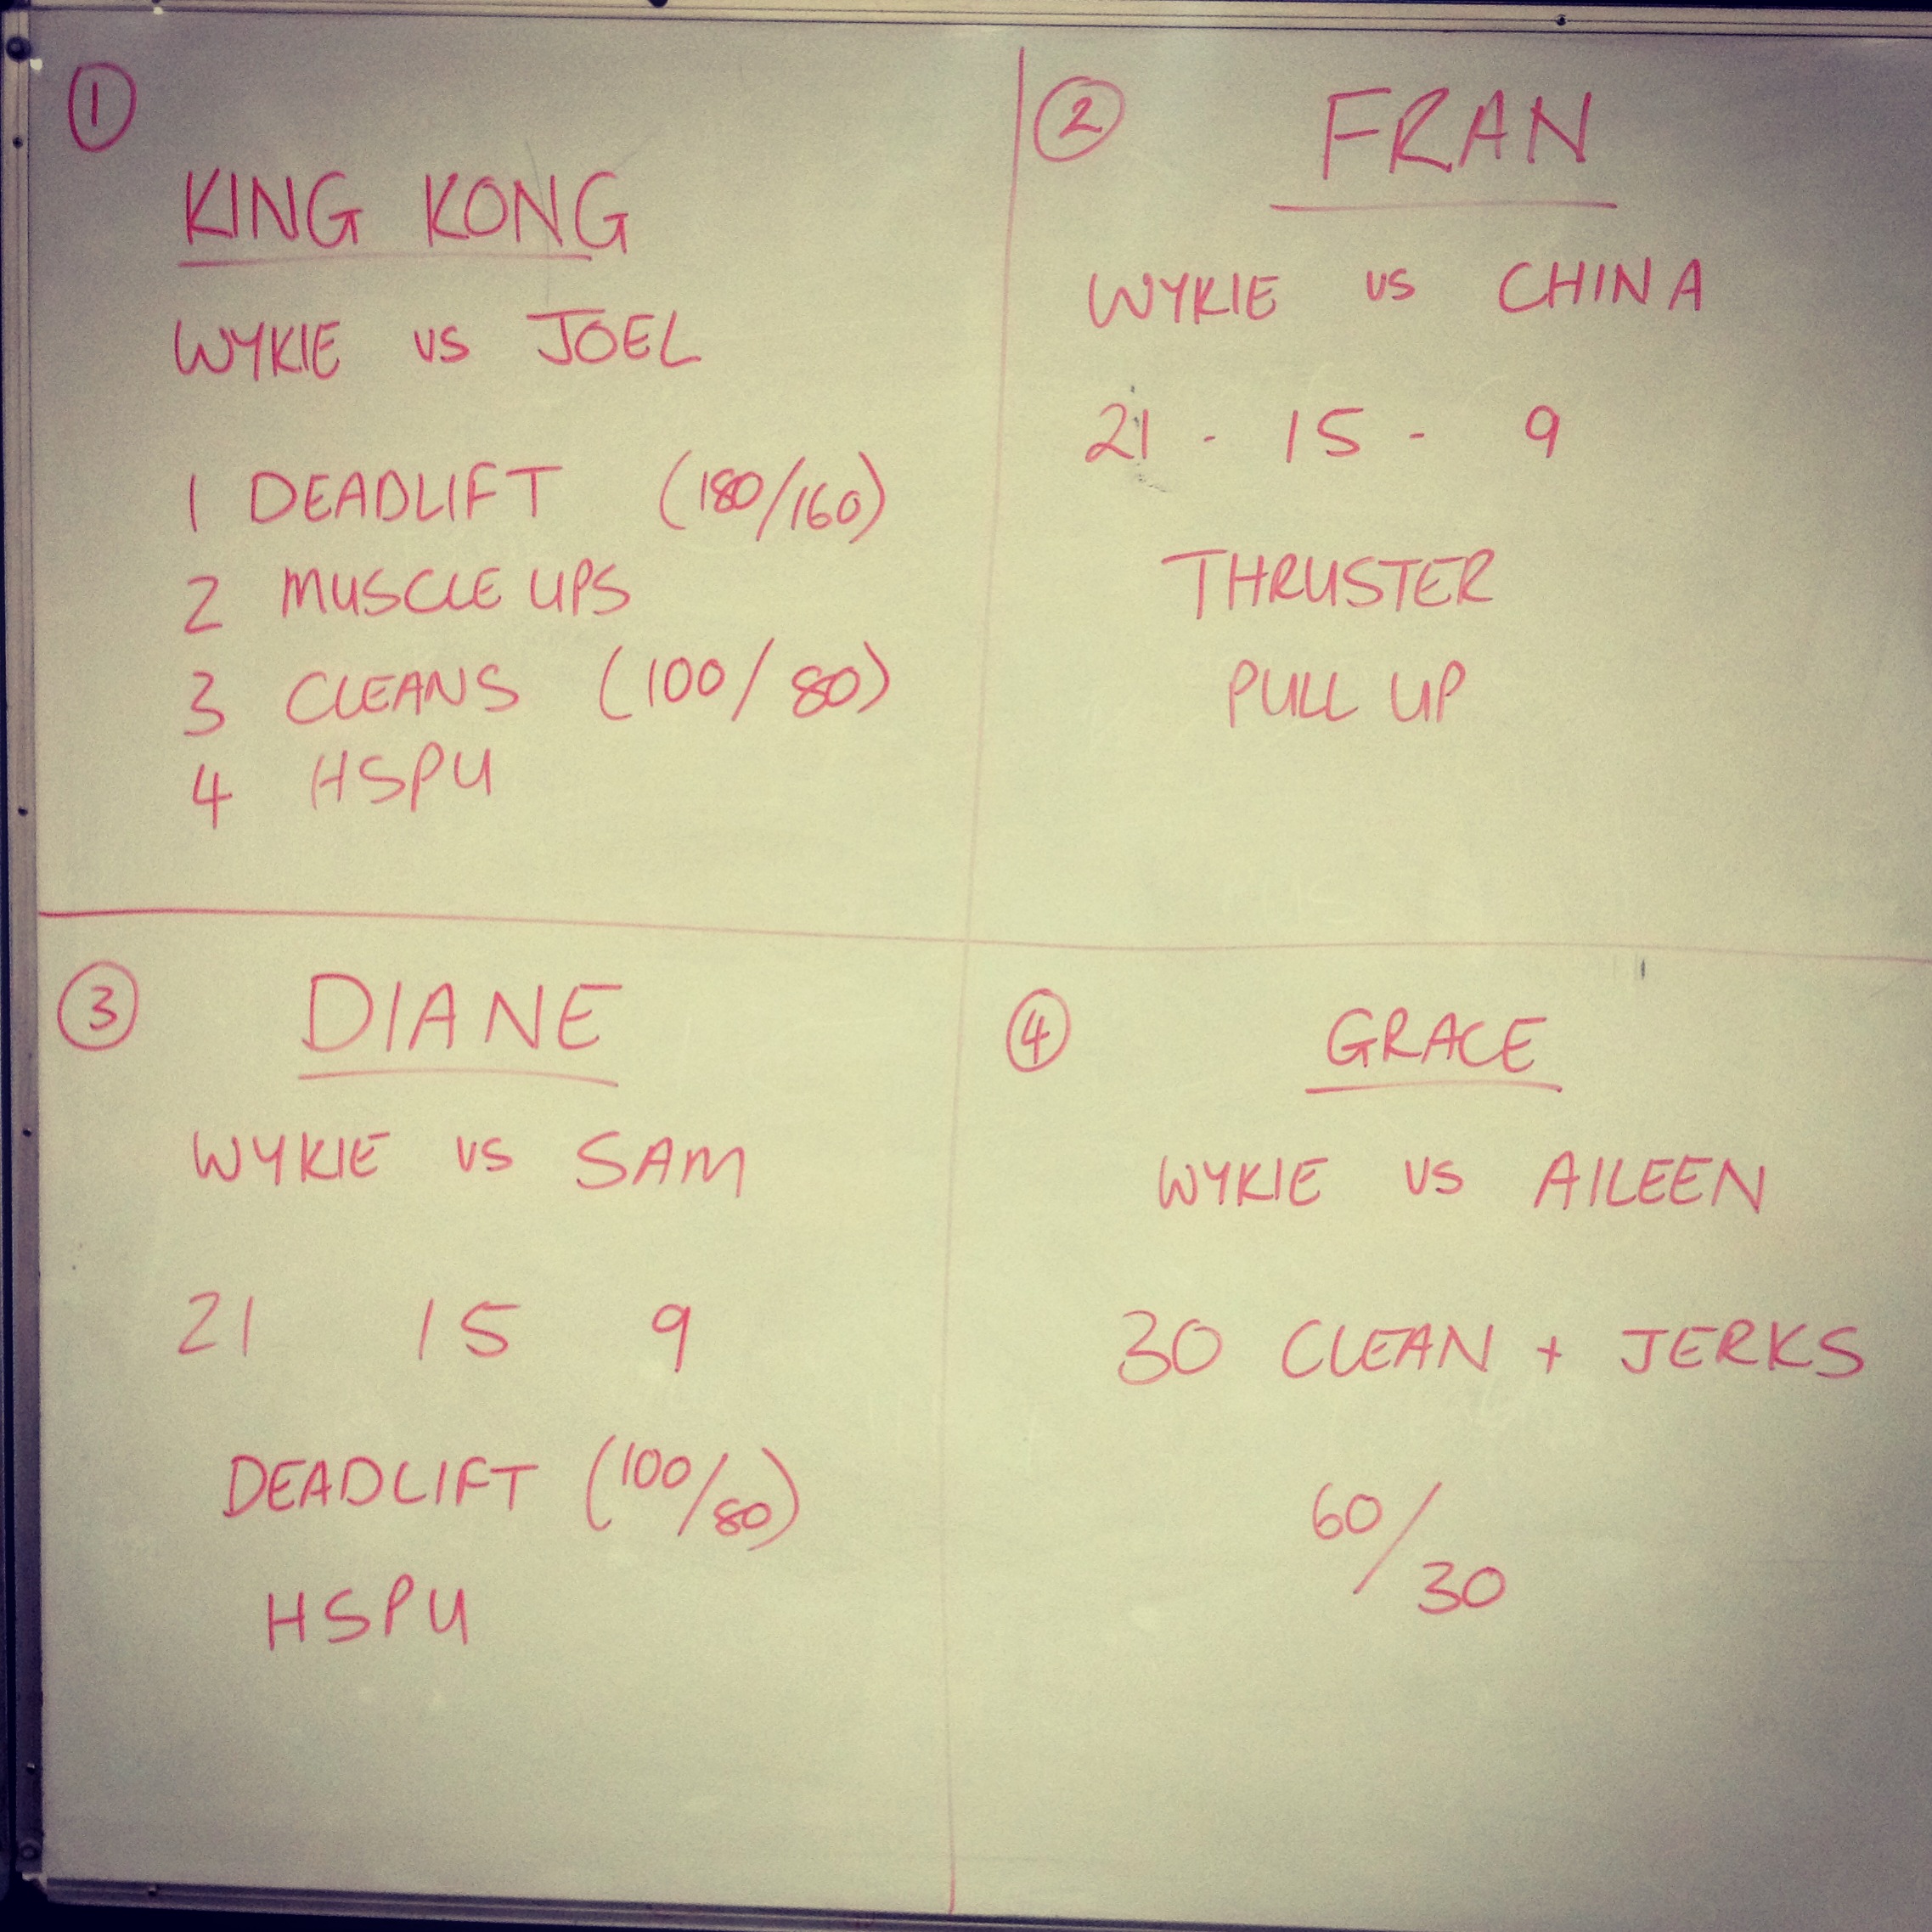 ①
KING KONG
WYKIE vs JOEL
1 DEADLIFT (180/160)
2 MUSCLE UPS
3 CLEANS (100/80)
4 HSPU
②
FRAN
WYKIE vs CHINA
21 - 15 - 9
THRUSTER
PULL UP
③
DIANE
WYKIE vs SAM
21 15 9
DEADLIFT (100/80)
HSPU
④
GRACE
WYKIE vs AILEEN
30 CLEAN + JERKS
60/30